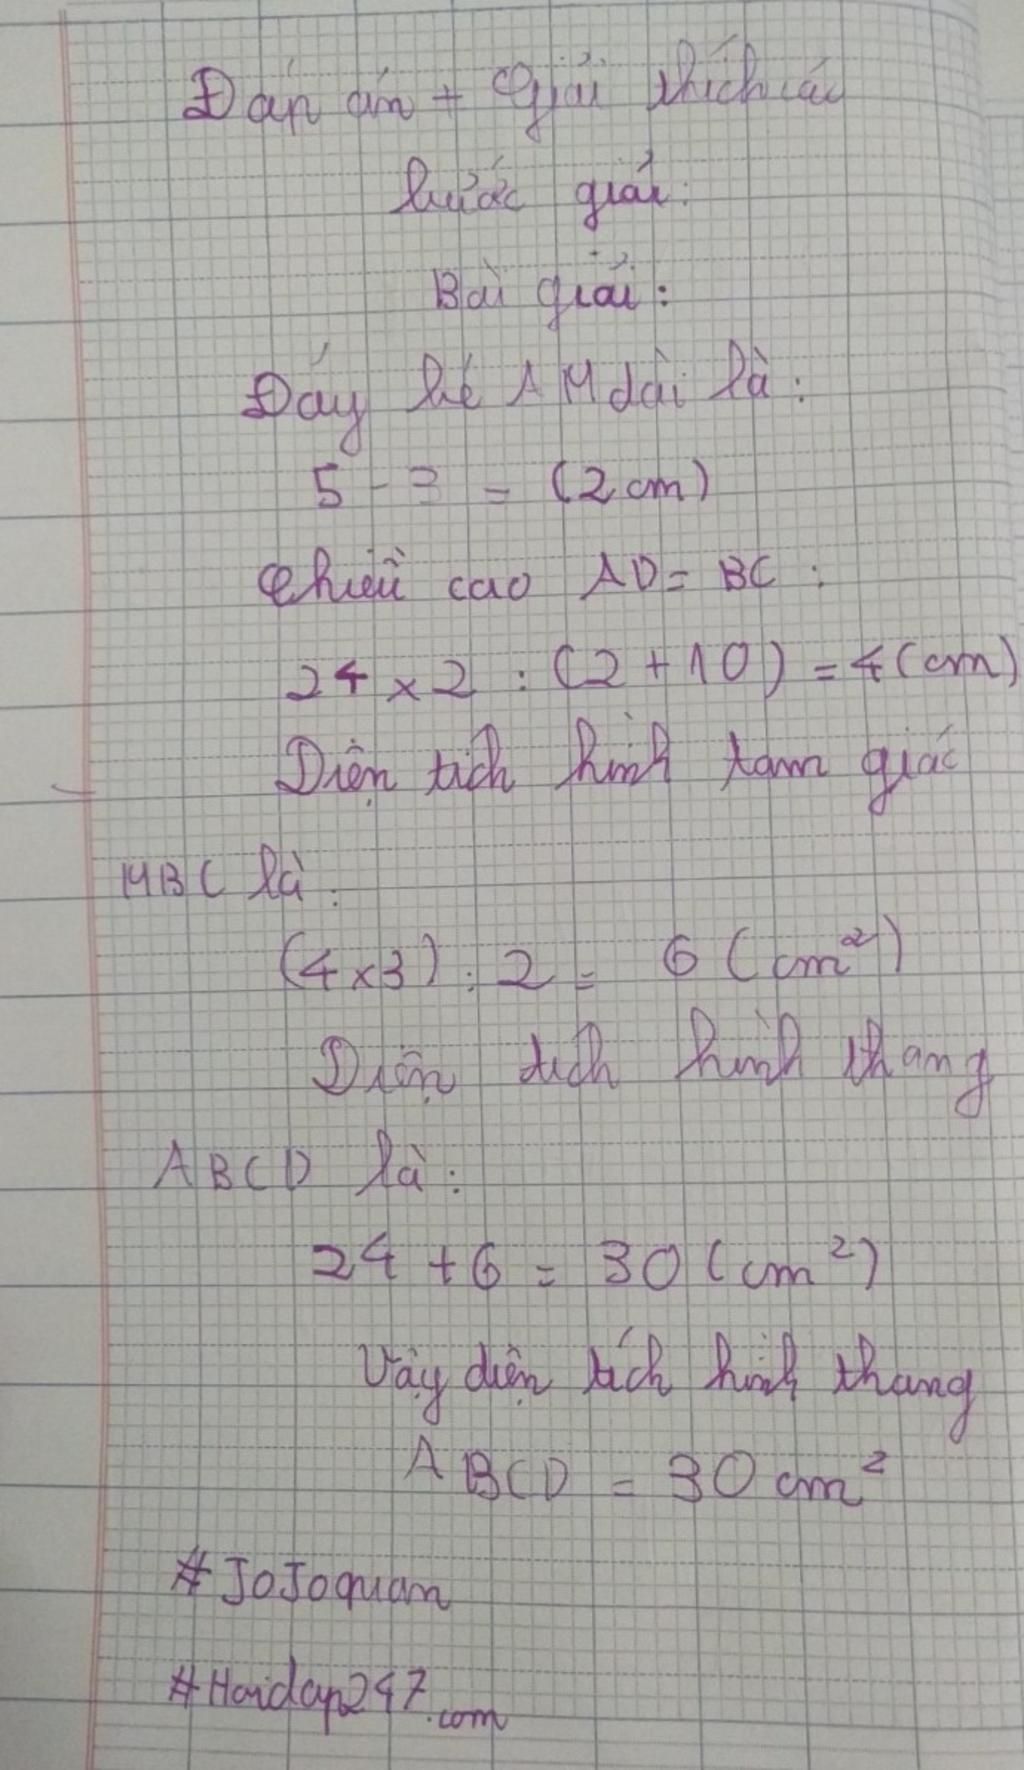 Đáp án + Giải thích các
bước giải:
Bài giải:
Đáy bé AM dài là:
5 - 3 = (2 cm)
Chiều cao AD = BC :
24 x 2 : (2 + 10) = 4 (cm)
Diện tích hình tam giác
MBC là:
(4 x 3) : 2 = 6 (cm²)
Diện tích hình thang
ABCD là:
24 + 6 = 30 (cm²)
Vậy diện tích hình thang
ABCD = 30 cm²
#JoJoquan
#Hoidap247.com